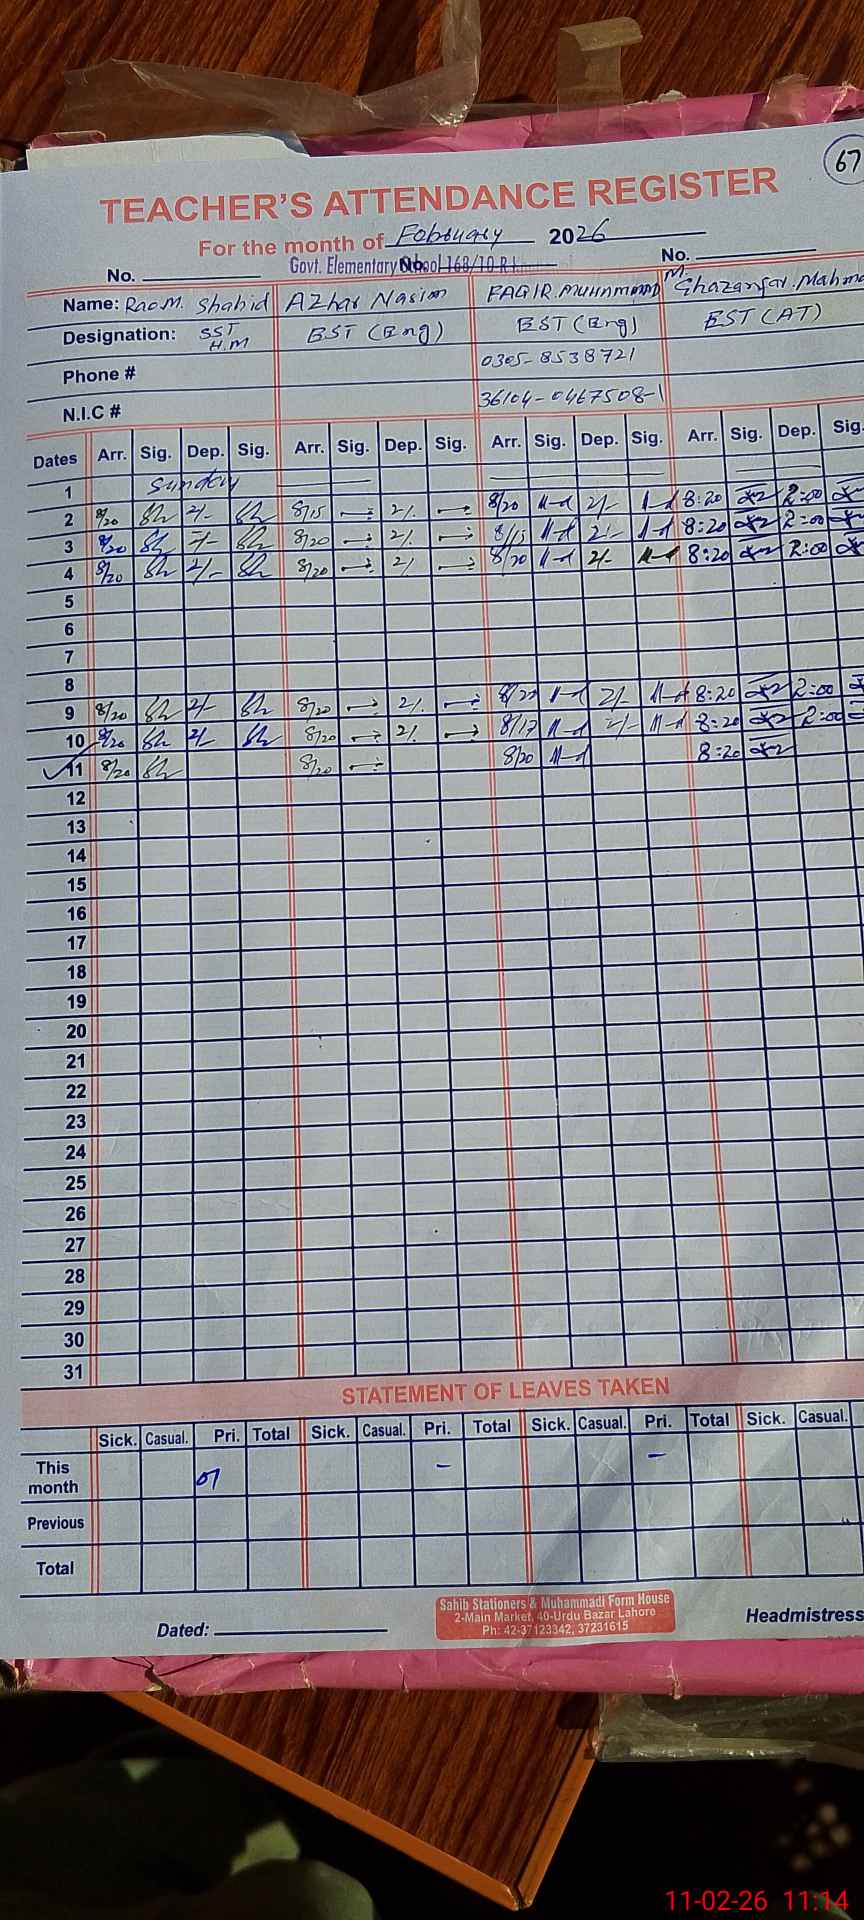 67
TEACHER'S ATTENDANCE REGISTER
For the month of February 2026
Govt. Elementary School 168/10-R
No. No. No.
Name: Rao M. Shahid Azhar Nasim FAQIR.MUHAMMAD M. Ghazanfar.Mahmo
Designation: SST H.M EST (Eng) EST (Eng) EST (AT)
Phone # 0305-8538721
N.I.C # 36104-0467508-1
Dates Arr. Sig. Dep. Sig. Arr. Sig. Dep. Sig. Arr. Sig. Dep. Sig. Arr. Sig. Dep. Sig.
1 Sunday
2 8/20 2/- 8/15 2/. 8/20 2/- 8:20 2:00
3 8/20 2/- 8/20 2/. 8/15 2/- 8:20 2:00
4 8/20 2/- 8/20 2/. 8/20 2/- 8:20 2:00
5
6
7
8
9 8/20 2/- 8/20 2/. 8/20 2/- 8:20 2:00
10 8/20 2/- 8/20 2/. 8/17 2/- 8:20 2:00
11 8/20 8/20 8/20 8:20
12
13
14
15
16
17
18
19
20
21
22
23
24
25
26
27
28
29
30
31
STATEMENT OF LEAVES TAKEN
Sick. Casual. Pri. Total Sick. Casual. Pri. Total Sick. Casual. Pri. Total Sick. Casual.
This month 01 - -
Previous
Total
Dated:
Sahib Stationers & Muhammadi Form House
2-Main Market, 40-Urdu Bazar Lahore
Ph: 42-37123342, 37231615
Headmistress
11-02-26 11:14